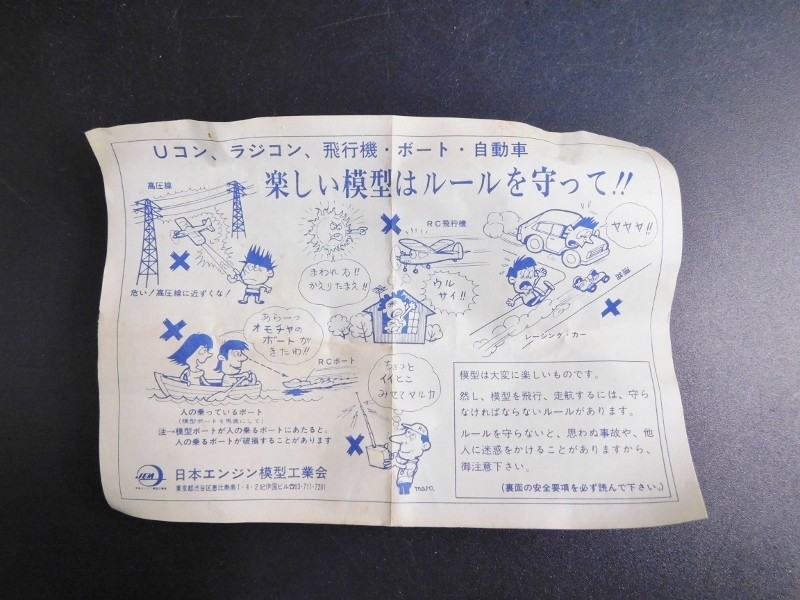 Uコン、ラジコン、飛行機・ボート・自動車
楽しい模型はルールを守って!!
高圧線
危い!高圧線に近ずくな!
まわれ右!!
かえりたまえ!!
RC飛行機
ウル
サイ!!
ヤヤヤ!!
道路
レーシング・カー
あらーっ
オモチャの
ボートが
きたわ!!
RCボート
人の乗っているボート
(模型ボートを馬鹿にして)
注→模型ボートが人の乗るボートにあたると、
人の乗るボートが破損することがあります
ちょっと
イイとこ
みせてマルカ
模型は大変に楽しいものです。
然し、模型を飛行、走航するには、守ら
なければならないルールがあります。
ルールを守らないと、思わぬ事故や、他
人に迷惑をかけることがありますから、
御注意下さい。
(裏面の安全要項を必ず読んで下さい。)
JEMA
日本エンジン模型工業会
東京都渋谷区恵比寿南1・4・2紀伊国ビル☎03-711-7291